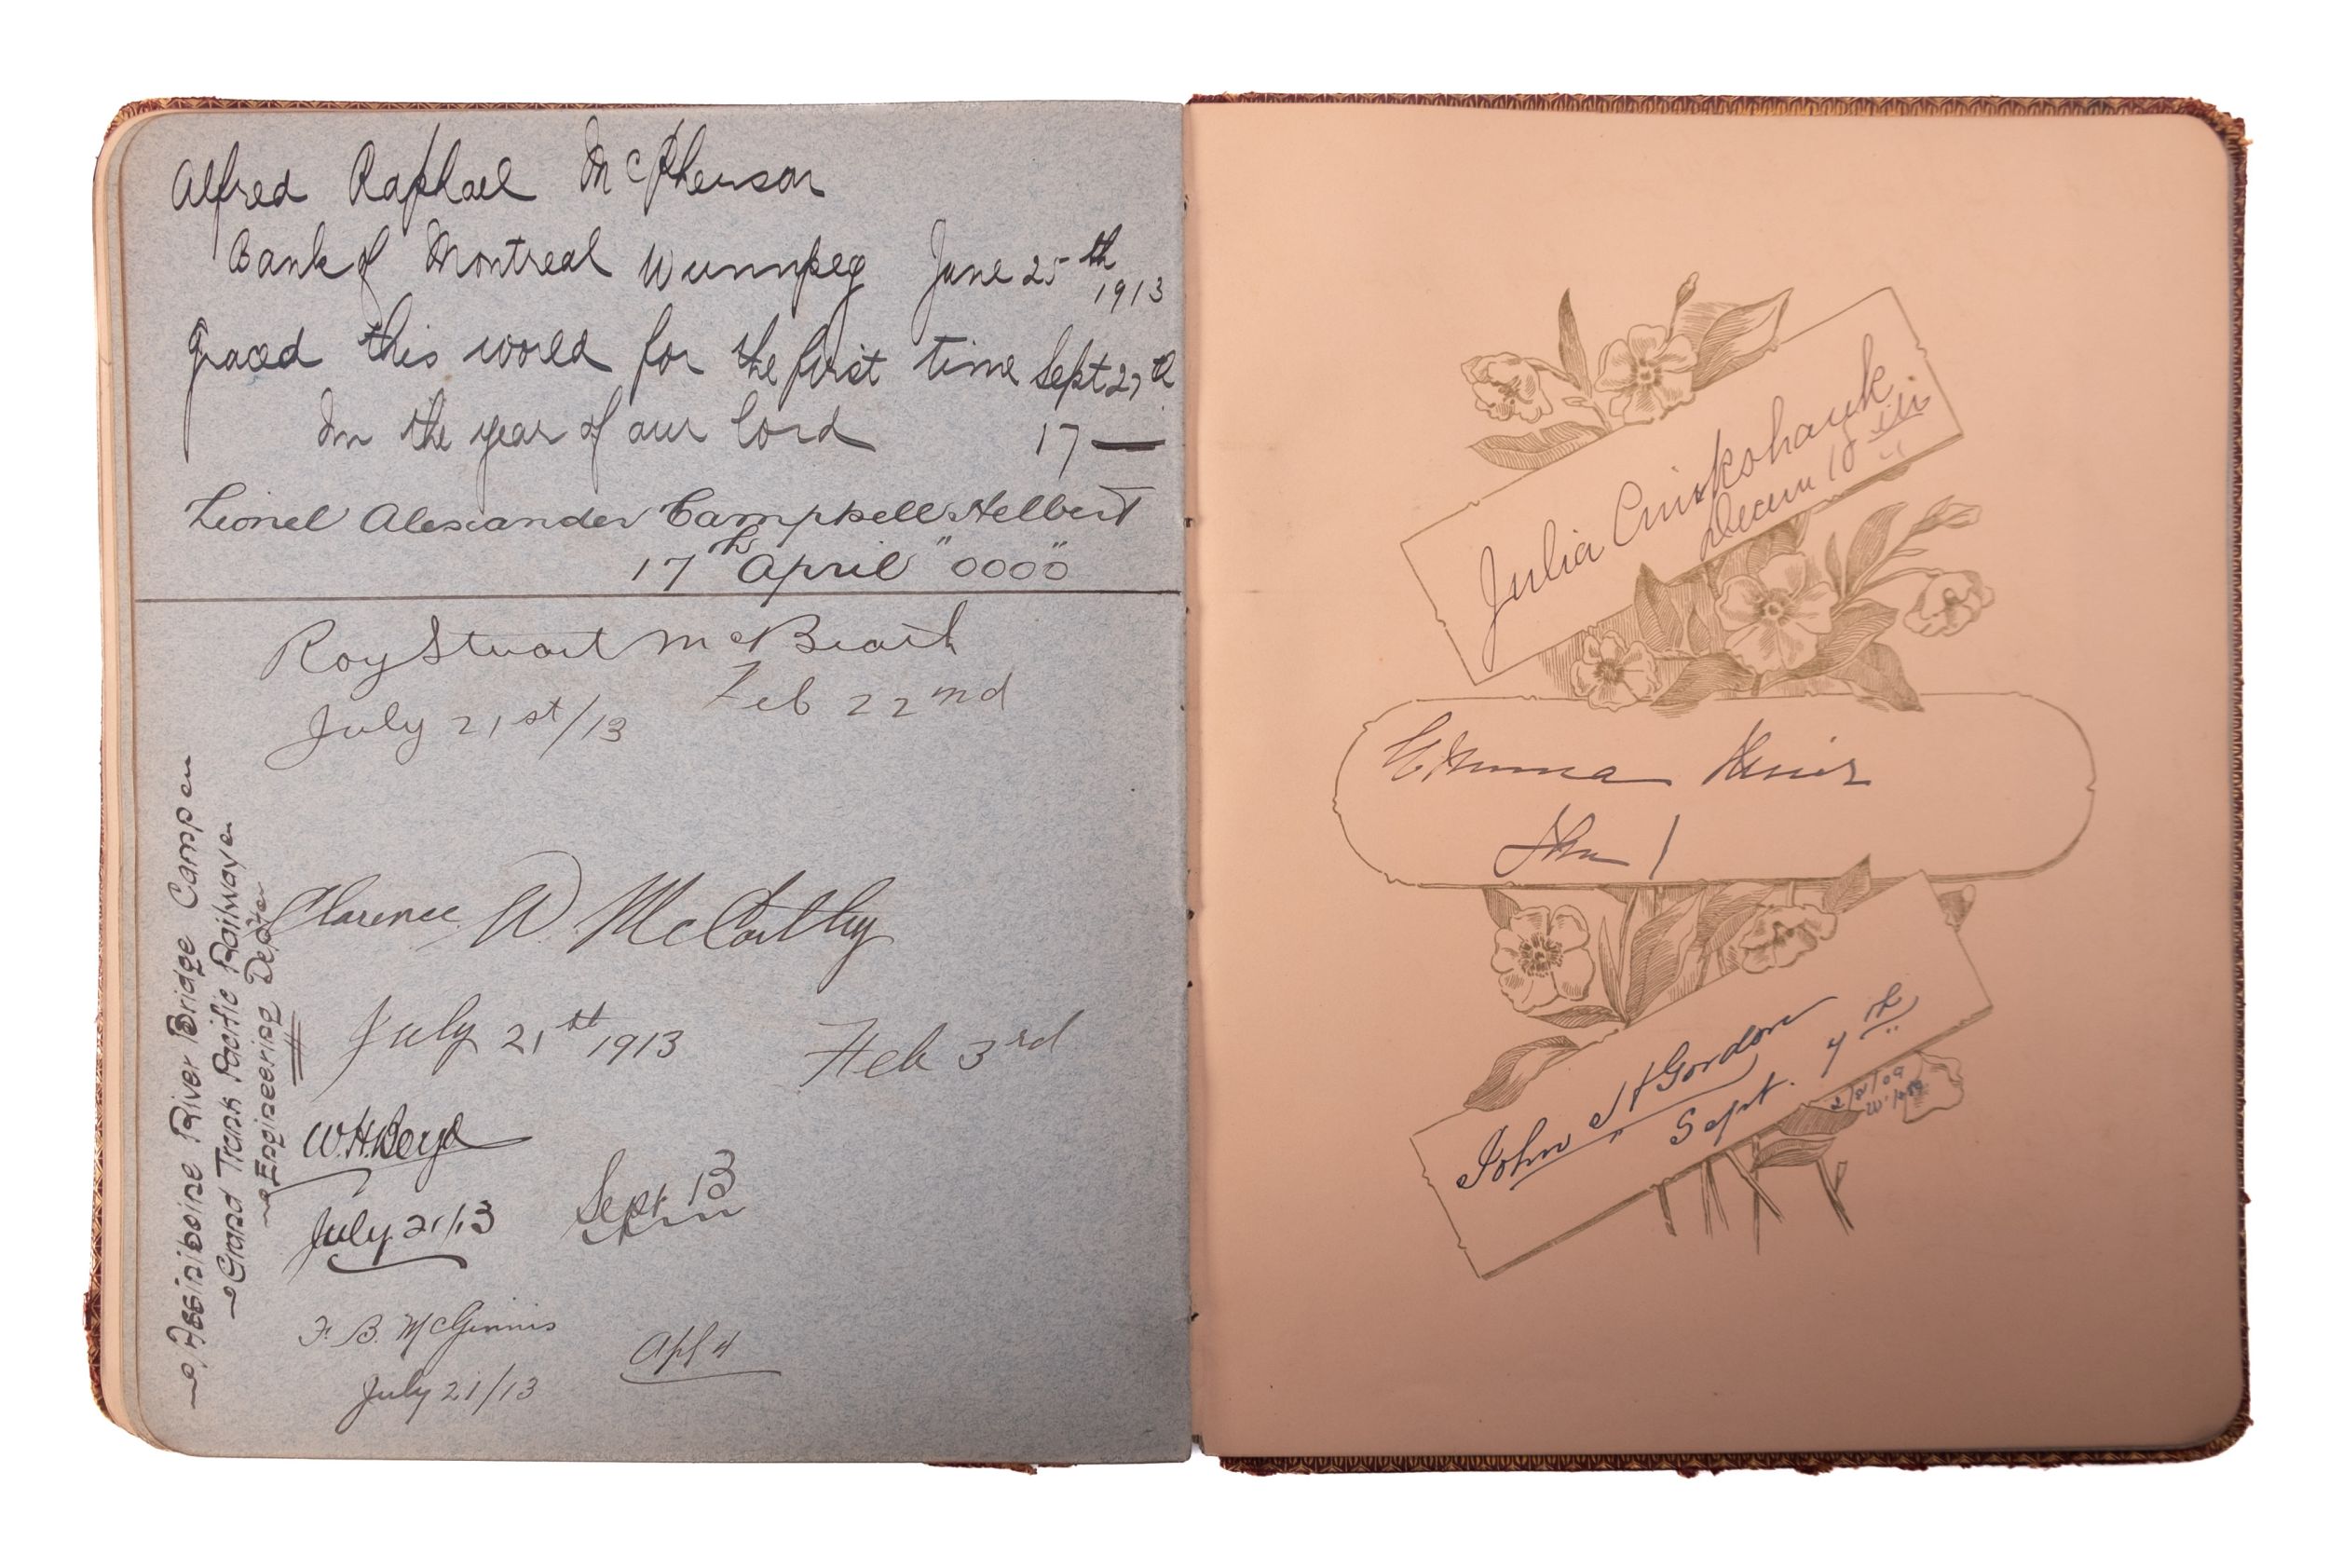 Alfred Raphael McPherson
Bank of Montreal Winnipeg June 25th
1913
graced this world for the first time Sept 27th
In the year of our Lord 17—
Lionel Alexander Campbell Helbert
17th April "0000"
Roy Stuart McBeath
July 21st/13 Feb 22nd
Clarence W. McCarthy
July 21st 1913 Feb 3rd
W.H. Boyd
July 21/13 Sept 13
F. B. McGinnis
July 21/13 Apl 4
Assiniboine River Bridge Camp
Grand Trunk Pacific Railway
Engineering Dept
Julia
18th
Emma
1
John H Gordon
Sept. 7th
2/8/09